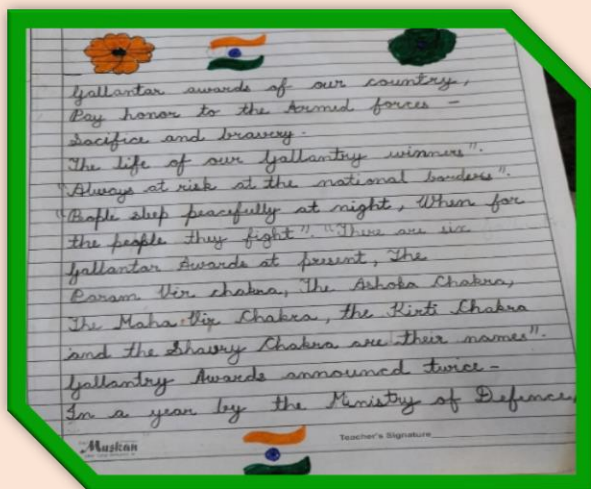 Gallantar awards of our country,
Pay honor to the Armed forces -
Sacifice and bravery.
The life of our Gallantry winners".
"Always at risk at the national borders".
"People sleep peacefully at night, When for
the people they fight". "There are six
Gallantar Awards at present, The
Param Vir chakra, The Ashoka Chakra,
The Maha Vir Chakra, the Kirti Chakra
and the Shaury Chakra are their names".
Gallantry Awards announcd twice -
In a year by the Ministry of Defence,
Muskan
Teacher's Signature